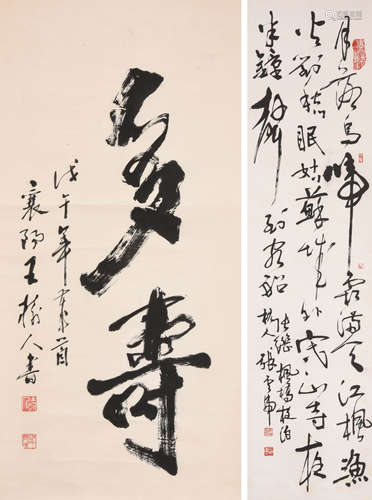 月落烏啼霜滿天江楓漁
火對愁眠姑蘇城外寒山寺夜
半鐘聲到客船
張繼楓橋夜泊
多壽
戊午年首
襄陽王樹人書